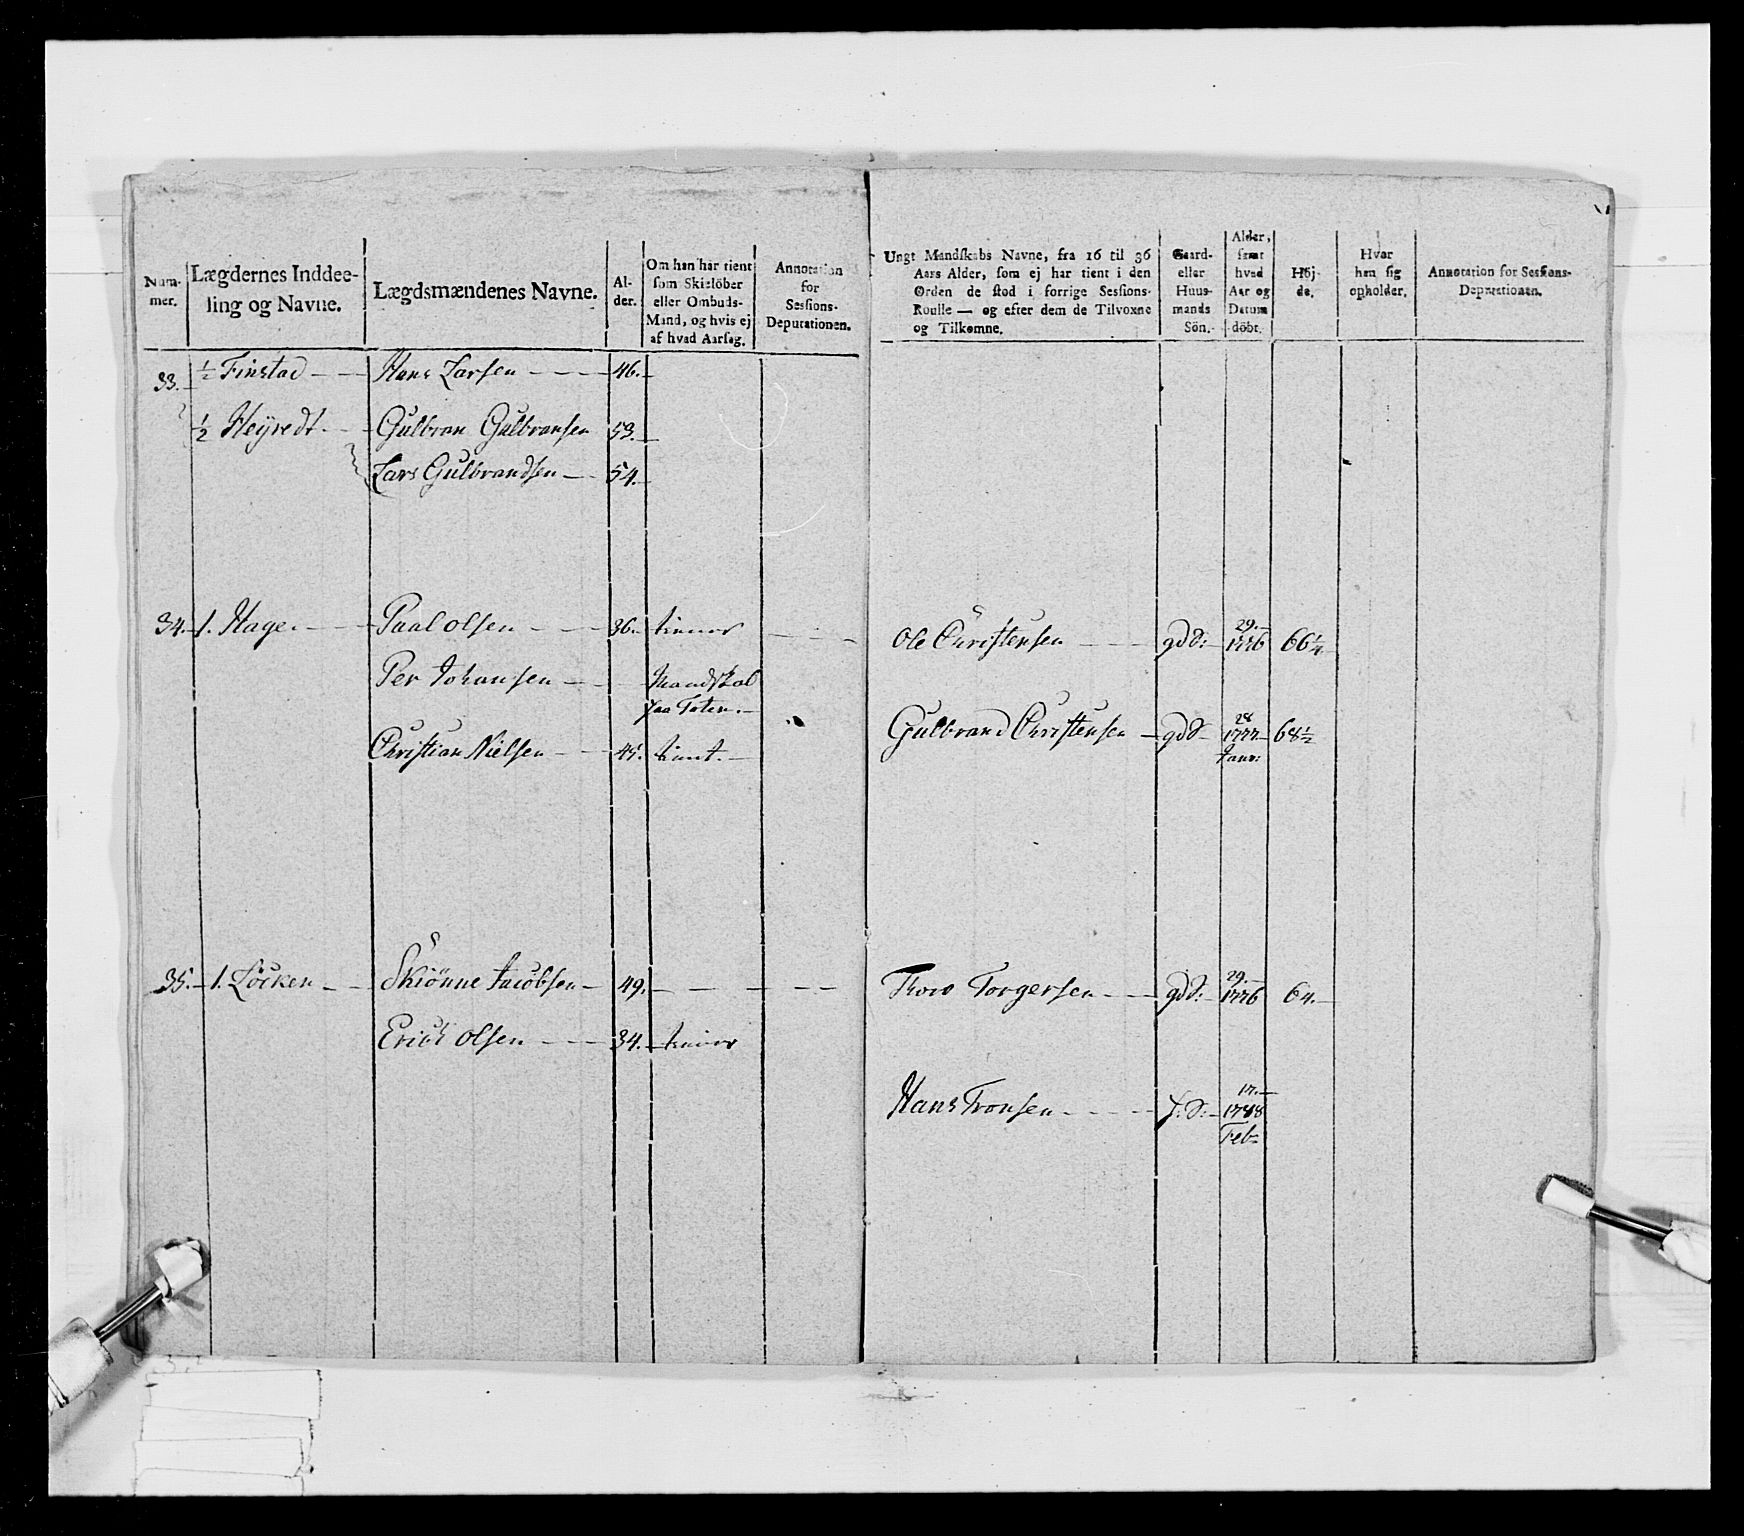 Num-
mer.
Lægdernes Inddee-
ling og Navne.
Lægdsmændenes Navne.
Al-
der.
Om han har tient
som Skieløber
eller Ombuds-
Mand, og hvis ej
af hvad Aarsag.
Annotation
for
Sessions-
Deputationen.
Ungt Mandskabs Navne, fra 16 til 36
Aars Alder, som ej har tient i den
Orden de stod i forrige Sessions-
Roulle — og efter dem de Tilvoxne
og Tilkomne.
Gaard-
eller
Huus-
mands
Sön.
Alder,
samt
hvad
Aar og
Datum
döbt.
Höj-
de.
Hvor
han sig
opholder.
Annotation for Sessions-
Deputationen.
33. ½ Finstad — Hans Larsen — 46.
½ Heyredt — Gulbran Gulbransen 53.
Lars Gulbrandsen — 54.
34. 1. Hagen — Paal Olsen — 36. tiener
Per Johansen — Mandskab
paa Toten.
Christian Nielsen — 45. tient.
Ole Christensen — gd S: 29. 1776 66¼
Gulbrand Christensen — gd S 28 1777 Janr: 68½
35. 1. Löcken — Skiönne Jacobsen — 49.
Erich Olsen — 34. tiener
Thore Torgersen — gd S: 29. 1776 64.
Hans Tronsen — S: 17. 1788 Feb: